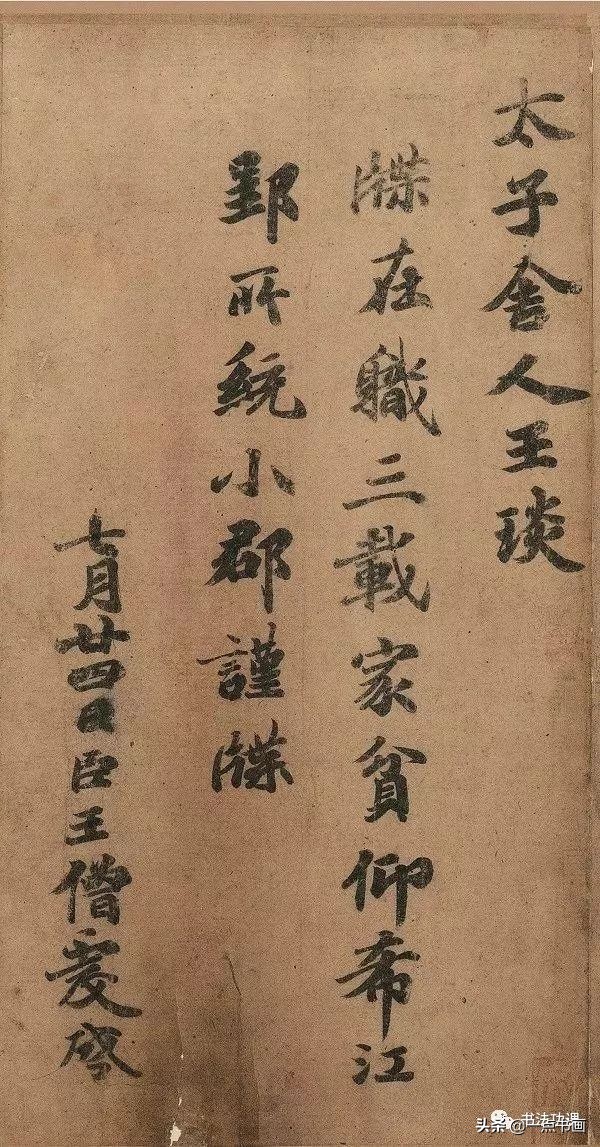 太子舍人王琰
牒在職三載家貧仰希江
郢所統小郡謹牒
七月廿四日臣王僧虔啓
书法功课
头条@一点书画